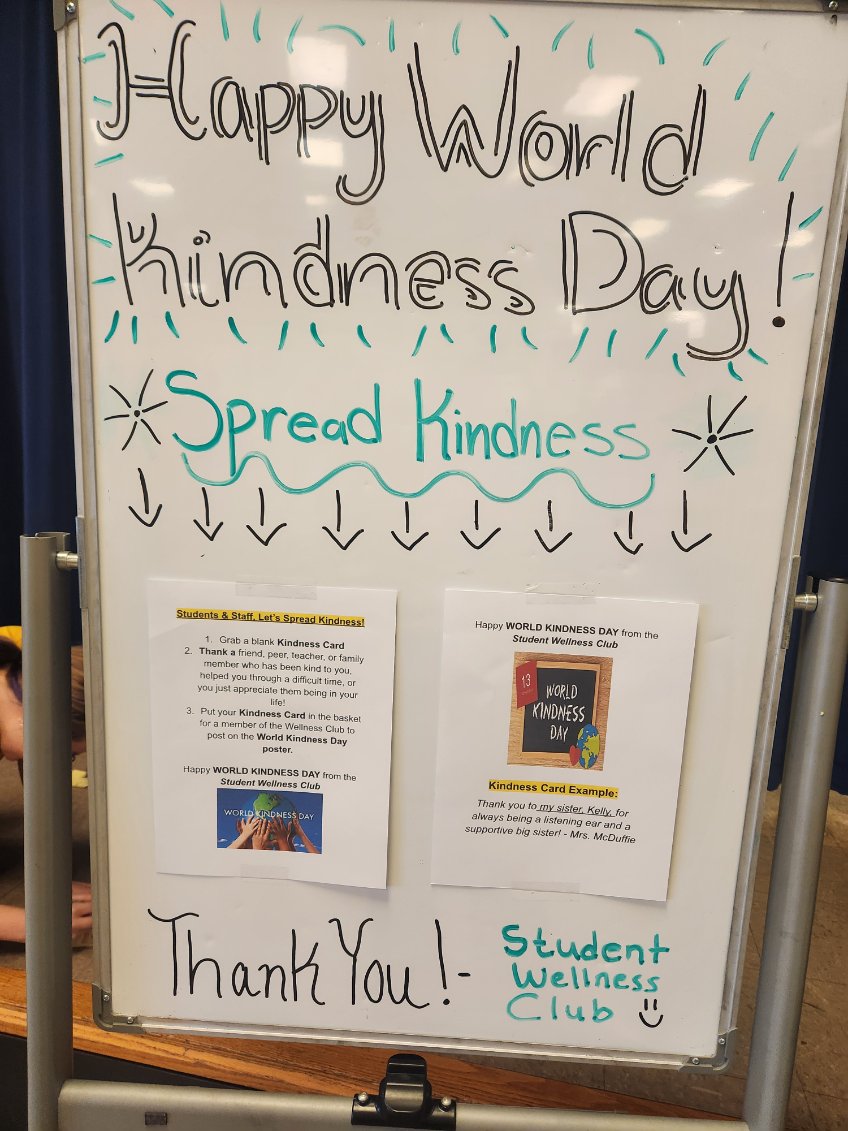 Happy World
Kindness Day!
Spread Kindness
Students & Staff, Let's Spread Kindness!
1. Grab a blank Kindness Card
2. Thank a friend, peer, teacher, or family
member who has been kind to you,
helped you through a difficult time, or
you just appreciate them being in your
life!
3. Put your Kindness Card in the basket
for a member of the Wellness Club to
post on the World Kindness Day
poster.
Happy WORLD KINDNESS DAY from the
Student Wellness Club
WORLD KINDNESS DAY
Happy WORLD KINDNESS DAY from the
Student Wellness Club
13
WORLD
KINDNESS
DAY
Kindness Card Example:
Thank you to my sister, Kelly, for
always being a listening ear and a
supportive big sister! - Mrs. McDuffie
Thank You! -
Student
Wellness
Club